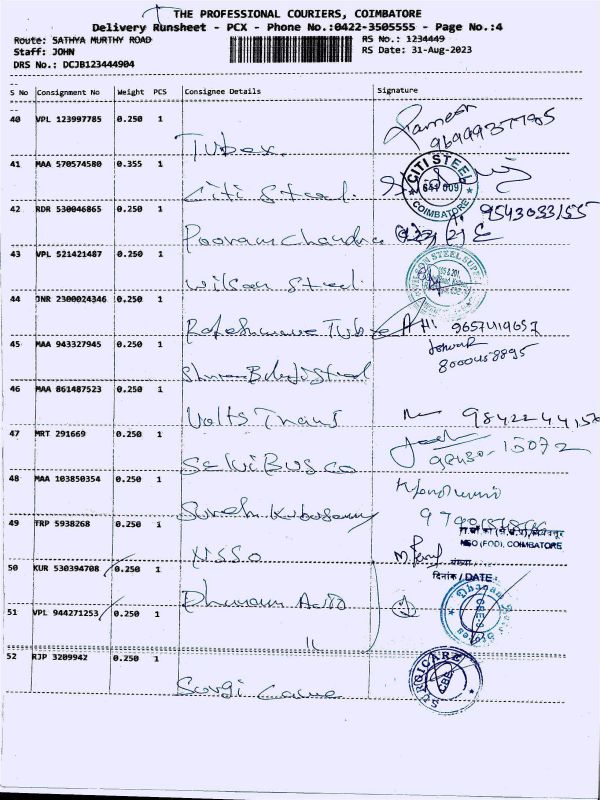 THE PROFESSIONAL COURIERS, COIMBATORE
Delivery Runsheet - PCX - Phone No.:0422-3505555 - Page No.:4
Route: SATHYA MURTHY ROAD RS No.: 1234449
Staff: JOHN RS Date: 31-Aug-2023
DRS No.: DCJB123444904
S No Consignment No Weight PCS Consignee Details Signature
40 VPL 123997785 0.250 1
Tubex.
41 MAA 570574580 0.355 1
Citi Steel. CITI STEEL 641 009 COIMBATORE
42 RDR 530046865 0.250 1 9543033155
Pooram Chandra
43 VPL 521421487 0.250 1
Wilson Steel. WILSON STEEL
44 JNR 2300024346 0.250 1
Rajeshwara Tube 9657419657
45 MAA 943327945 0.250 1
8000458895
Shree Balaji Steel
46 MAA 861487523 0.250 1
Volts Trans
47 MRT 291669 0.250 1
98430-15072
Selvi Bus Co
48 MAA 103850354 0.250 1
Suresh
49 TRP 5938268 0.250 1
NSO (FOD), COIMBATORE
NSSO
50 KUR 530394708 0.250 1
दिनांक / DATE:
Dhanam Auto
51 VPL 944271253 0.250 1
"
52 RJP 3209942 0.250 1
Surgi Care SURGICARE CBE